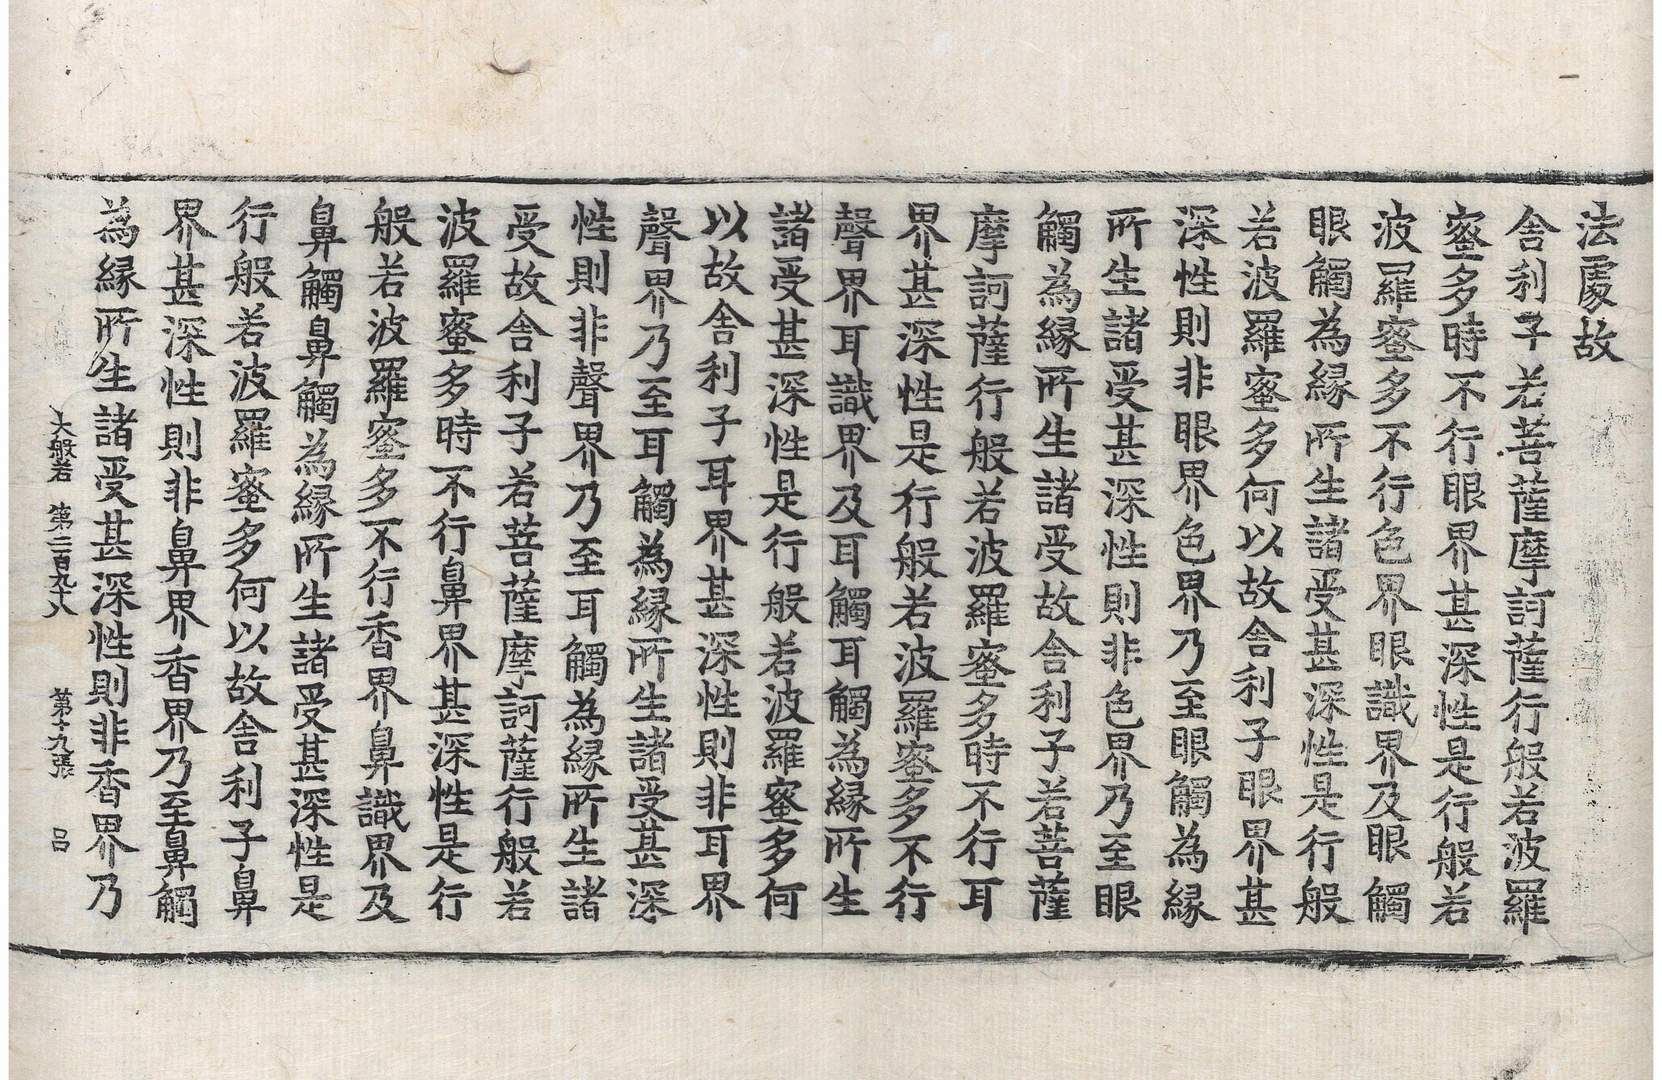 法處故
舍利子若菩薩摩訶薩行般若波羅
蜜多時不行眼界甚深性是行般若
波羅蜜多不行色界眼識界及眼觸
眼觸為緣所生諸受甚深性是行般
若波羅蜜多何以故舍利子眼界甚
深性則非眼界色界乃至眼觸為緣
所生諸受甚深性則非色界乃至眼
觸為緣所生諸受故舍利子若菩薩
摩訶薩行般若波羅蜜多時不行耳
界甚深性是行般若波羅蜜多不行
聲界耳識界及耳觸耳觸為緣所生
諸受甚深性是行般若波羅蜜多何
以故舍利子耳界甚深性則非耳界
聲界乃至耳觸為緣所生諸受甚深
性則非聲界乃至耳觸為緣所生諸
受故舍利子若菩薩摩訶薩行般若
波羅蜜多時不行鼻界甚深性是行
般若波羅蜜多不行香界鼻識界及
鼻觸鼻觸為緣所生諸受甚深性是
行般若波羅蜜多何以故舍利子鼻
界甚深性則非鼻界香界乃至鼻觸
為緣所生諸受甚深性則非香界乃
大般若 第二百九十八 第十九張 呂